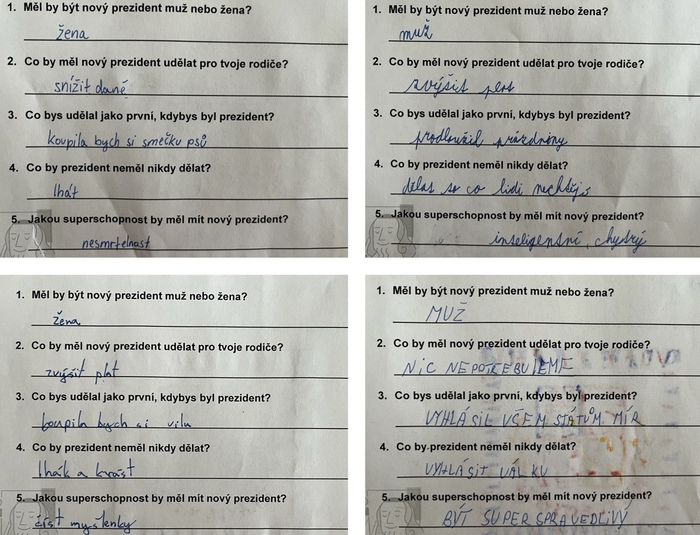 1. Měl by být nový prezident muž nebo žena?
žena
2. Co by měl nový prezident udělat pro tvoje rodiče?
snížit daně
3. Co bys udělal jako první, kdybys byl prezident?
koupila bych si smečku psů
4. Co by prezident neměl nikdy dělat?
lhát
5. Jakou superschopnost by měl mít nový prezident?
nesmrtelnost
1. Měl by být nový prezident muž nebo žena?
muž
2. Co by měl nový prezident udělat pro tvoje rodiče?
zvýšit
3. Co bys udělal jako první, kdybys byl prezident?
prodloužil prázdniny
4. Co by prezident neměl nikdy dělat?
dělat to co lidi nechtějí
5. Jakou superschopnost by měl mít nový prezident?
inteligentní, chytrý
1. Měl by být nový prezident muž nebo žena?
žena
2. Co by měl nový prezident udělat pro tvoje rodiče?
zvýšit plat
3. Co bys udělal jako první, kdybys byl prezident?
koupila bych si vilu
4. Co by prezident neměl nikdy dělat?
lhák a krást
5. Jakou superschopnost by měl mít nový prezident?
číst myšlenky
1. Měl by být nový prezident muž nebo žena?
MUŽ
2. Co by měl nový prezident udělat pro tvoje rodiče?
NIC NEPOTŘEBUJEME
3. Co bys udělal jako první, kdybys byl prezident?
VYHLÁSIL VŠEM STÁTŮM MÍR
4. Co by prezident neměl nikdy dělat?
VYHLÁSIT VÁLKU
5. Jakou superschopnost by měl mít nový prezident?
BÝT SUPER SPRAVEDLIVÝ